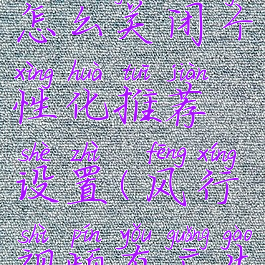 怎么关闭个
xìng huà tuī jiàn
性化推荐
shè zhì fēng xíng
设置(风行
shì pín yǒu guǎng gào
视频有广告